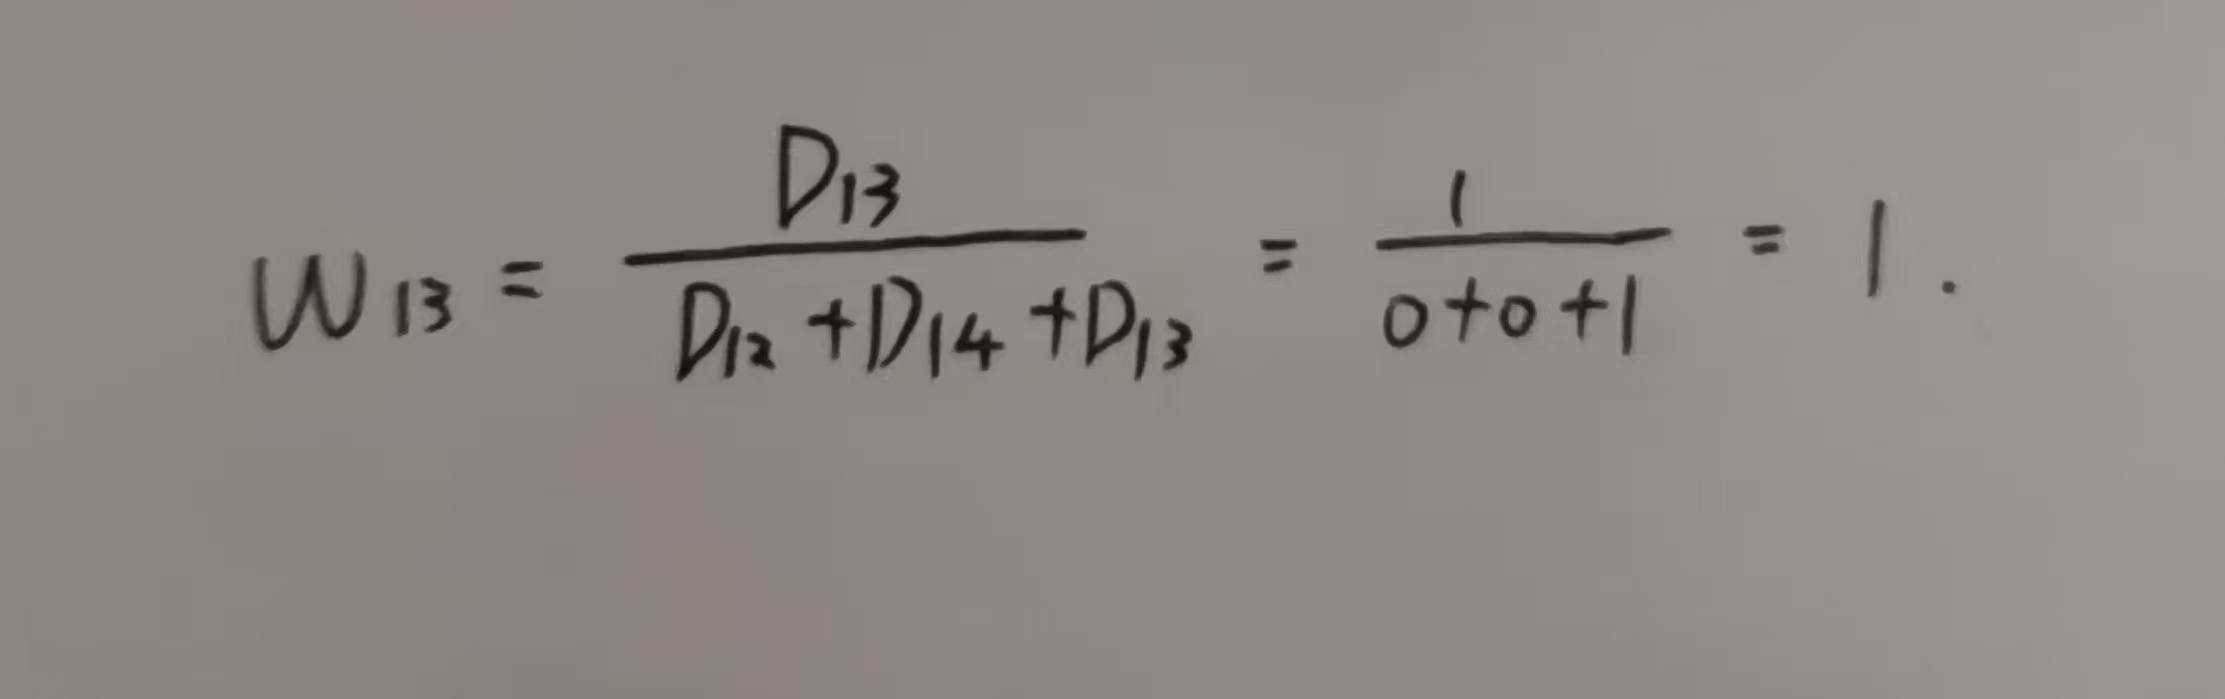 W₁₃ = D₁₃ / (D₁₂ + D₁₄ + D₁₃) = 1 / (0 + 0 + 1) = 1.